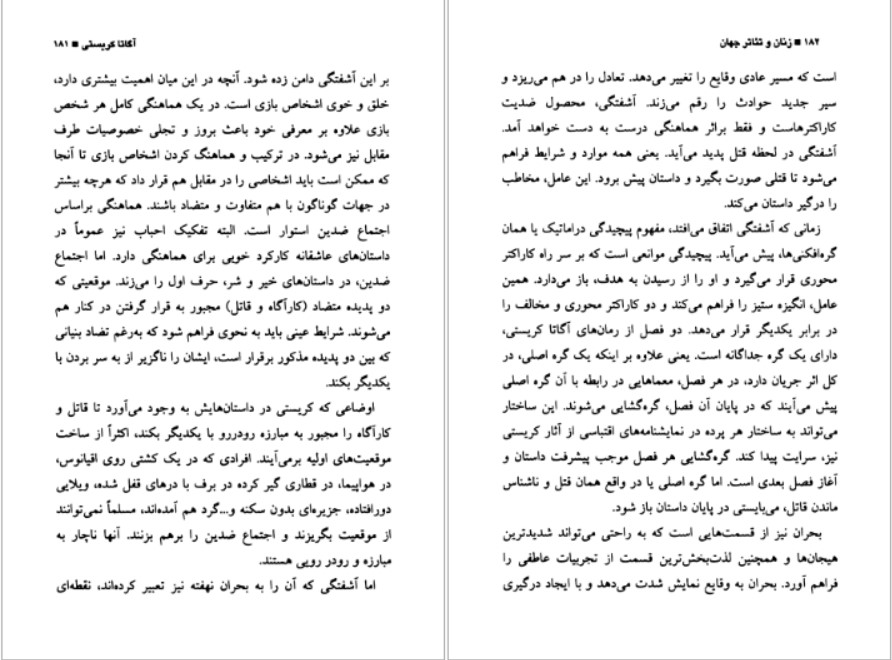 آگاتا کریستی ■ ۱۸۱
بر این آشفتگی دامن زده شود. آنچه در این میان اهمیت بیشتری دارد،
خلق و خوی اشخاص بازی است. در یک هماهنگی کامل هر شخص
بازی علاوه بر معرفی خود باعث بروز و تجلی خصوصیات طرف
مقابل نیز می‌شود. در ترکیب و هماهنگ کردن اشخاص بازی تا آنجا
که ممکن است باید اشخاصی را در مقابل هم قرار داد که هرچه بیشتر
در جهات گوناگون با هم متفاوت و متضاد باشند. هماهنگی براساس
اجتماع ضدین استوار است. البته تفکیک احباب نیز عموماً در
داستان‌های عاشقانه کارکرد خوبی برای هماهنگی دارد. اما اجتماع
ضدین، در داستان‌های خیر و شر، حرف اول را می‌زند. موقعیتی که
دو پدیده متضاد (کارآگاه و قاتل) مجبور به قرار گرفتن در کنار هم
می‌شوند. شرایط عینی باید به نحوی فراهم شود که به‌رغم تضاد بنیانی
که بین دو پدیده مذکور برقرار است، ایشان را ناگزیر از به سر بردن با
یکدیگر بکند.
اوضاعی که کریستی در داستان‌هایش به وجود می‌آورد تا قاتل و
کارآگاه را مجبور به مبارزه رودررو با یکدیگر بکند، اکثراً از ساخت
موقعیت‌های اولیه برمی‌آیند. افرادی که در یک کشتی روی اقیانوس،
در هواپیما، در قطاری گیر کرده در برف با درهای قفل شده، ویلایی
دورافتاده، جزیره‌ای بدون سکنه و...گرد هم آمده‌اند، مسلماً نمی‌توانند
از موقعیت بگریزند و اجتماع ضدین را برهم بزنند. آنها ناچار به
مبارزه و رودر رویی هستند.
اما آشفتگی که آن را به بحران نهفته نیز تعبیر کرده‌اند، نقطه‌ای
۱۸۲ ■ زنان و تئاتر جهان
است که مسیر عادی وقایع را تغییر می‌دهد. تعادل را در هم می‌ریزد و
سیر جدید حوادث را رقم می‌زند. آشفتگی، محصول ضدیت
کاراکترهاست و فقط براثر هماهنگی درست به دست خواهد آمد.
آشفتگی در لحظه قتل پدید می‌آید. یعنی همه موارد و شرایط فراهم
می‌شود تا قتلی صورت بگیرد و داستان پیش برود. این عامل، مخاطب
را درگیر داستان می‌کند.
زمانی که آشفتگی اتفاق می‌افتد، مفهوم پیچیدگی دراماتیک یا همان
گره‌افکنی‌ها، پیش می‌آید. پیچیدگی موانعی است که بر سر راه کاراکتر
محوری قرار می‌گیرد و او را از رسیدن به هدف، باز می‌دارد. همین
عامل، انگیزه ستیز را فراهم می‌کند و دو کاراکتر محوری و مخالف را
در برابر یکدیگر قرار می‌دهد. دو فصل از رمان‌های آگاتا کریستی،
دارای یک گره جداگانه است. یعنی علاوه بر اینکه یک گره اصلی، در
کل اثر جریان دارد، در هر فصل، معماهایی در رابطه با آن گره اصلی
پیش می‌آیند که در پایان آن فصل، گره‌گشایی می‌شوند. این ساختار
می‌تواند به ساختار هر پرده در نمایشنامه‌های اقتباسی از آثار کریستی
نیز، سرایت پیدا کند. گره‌گشایی هر فصل موجب پیشرفت داستان و
آغاز فصل بعدی است. اما گره اصلی یا در واقع همان قتل و ناشناس
ماندن قاتل، می‌بایستی در پایان داستان باز شود.
بحران نیز از قسمت‌هایی است که به راحتی می‌تواند شدیدترین
هیجان‌ها و همچنین لذت‌بخش‌ترین قسمت از تجربیات عاطفی را
فراهم آورد. بحران به وقایع نمایش شدت می‌دهد و با ایجاد درگیری